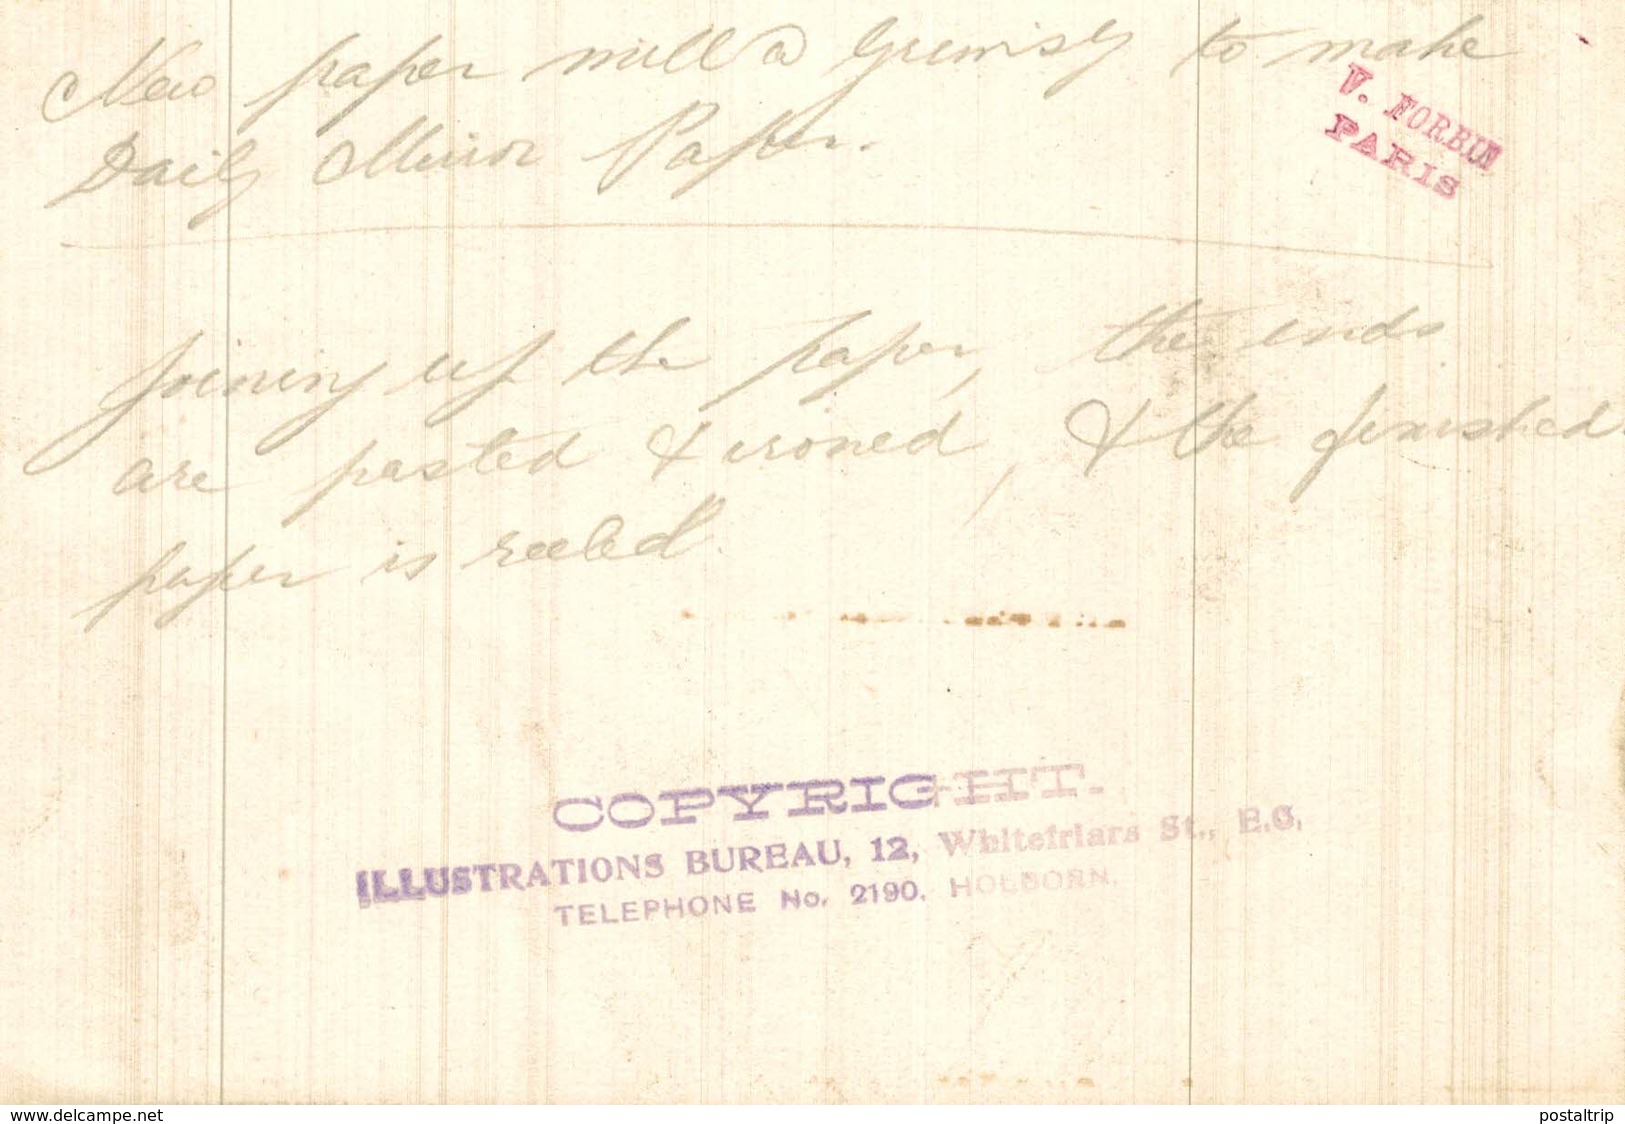 New paper mill @ Grimsby to make
Daily Mirror Paper.
V. FORBIN
PARIS
Joining up the paper, the ends
are pasted & ironed, & the finished
paper is reeled.
COPYRIGHT.
ILLUSTRATIONS BUREAU, 12, Whitefriars St., E.C.
TELEPHONE No. 2190. HOLBORN.
www.delcampe.net
postaltrip